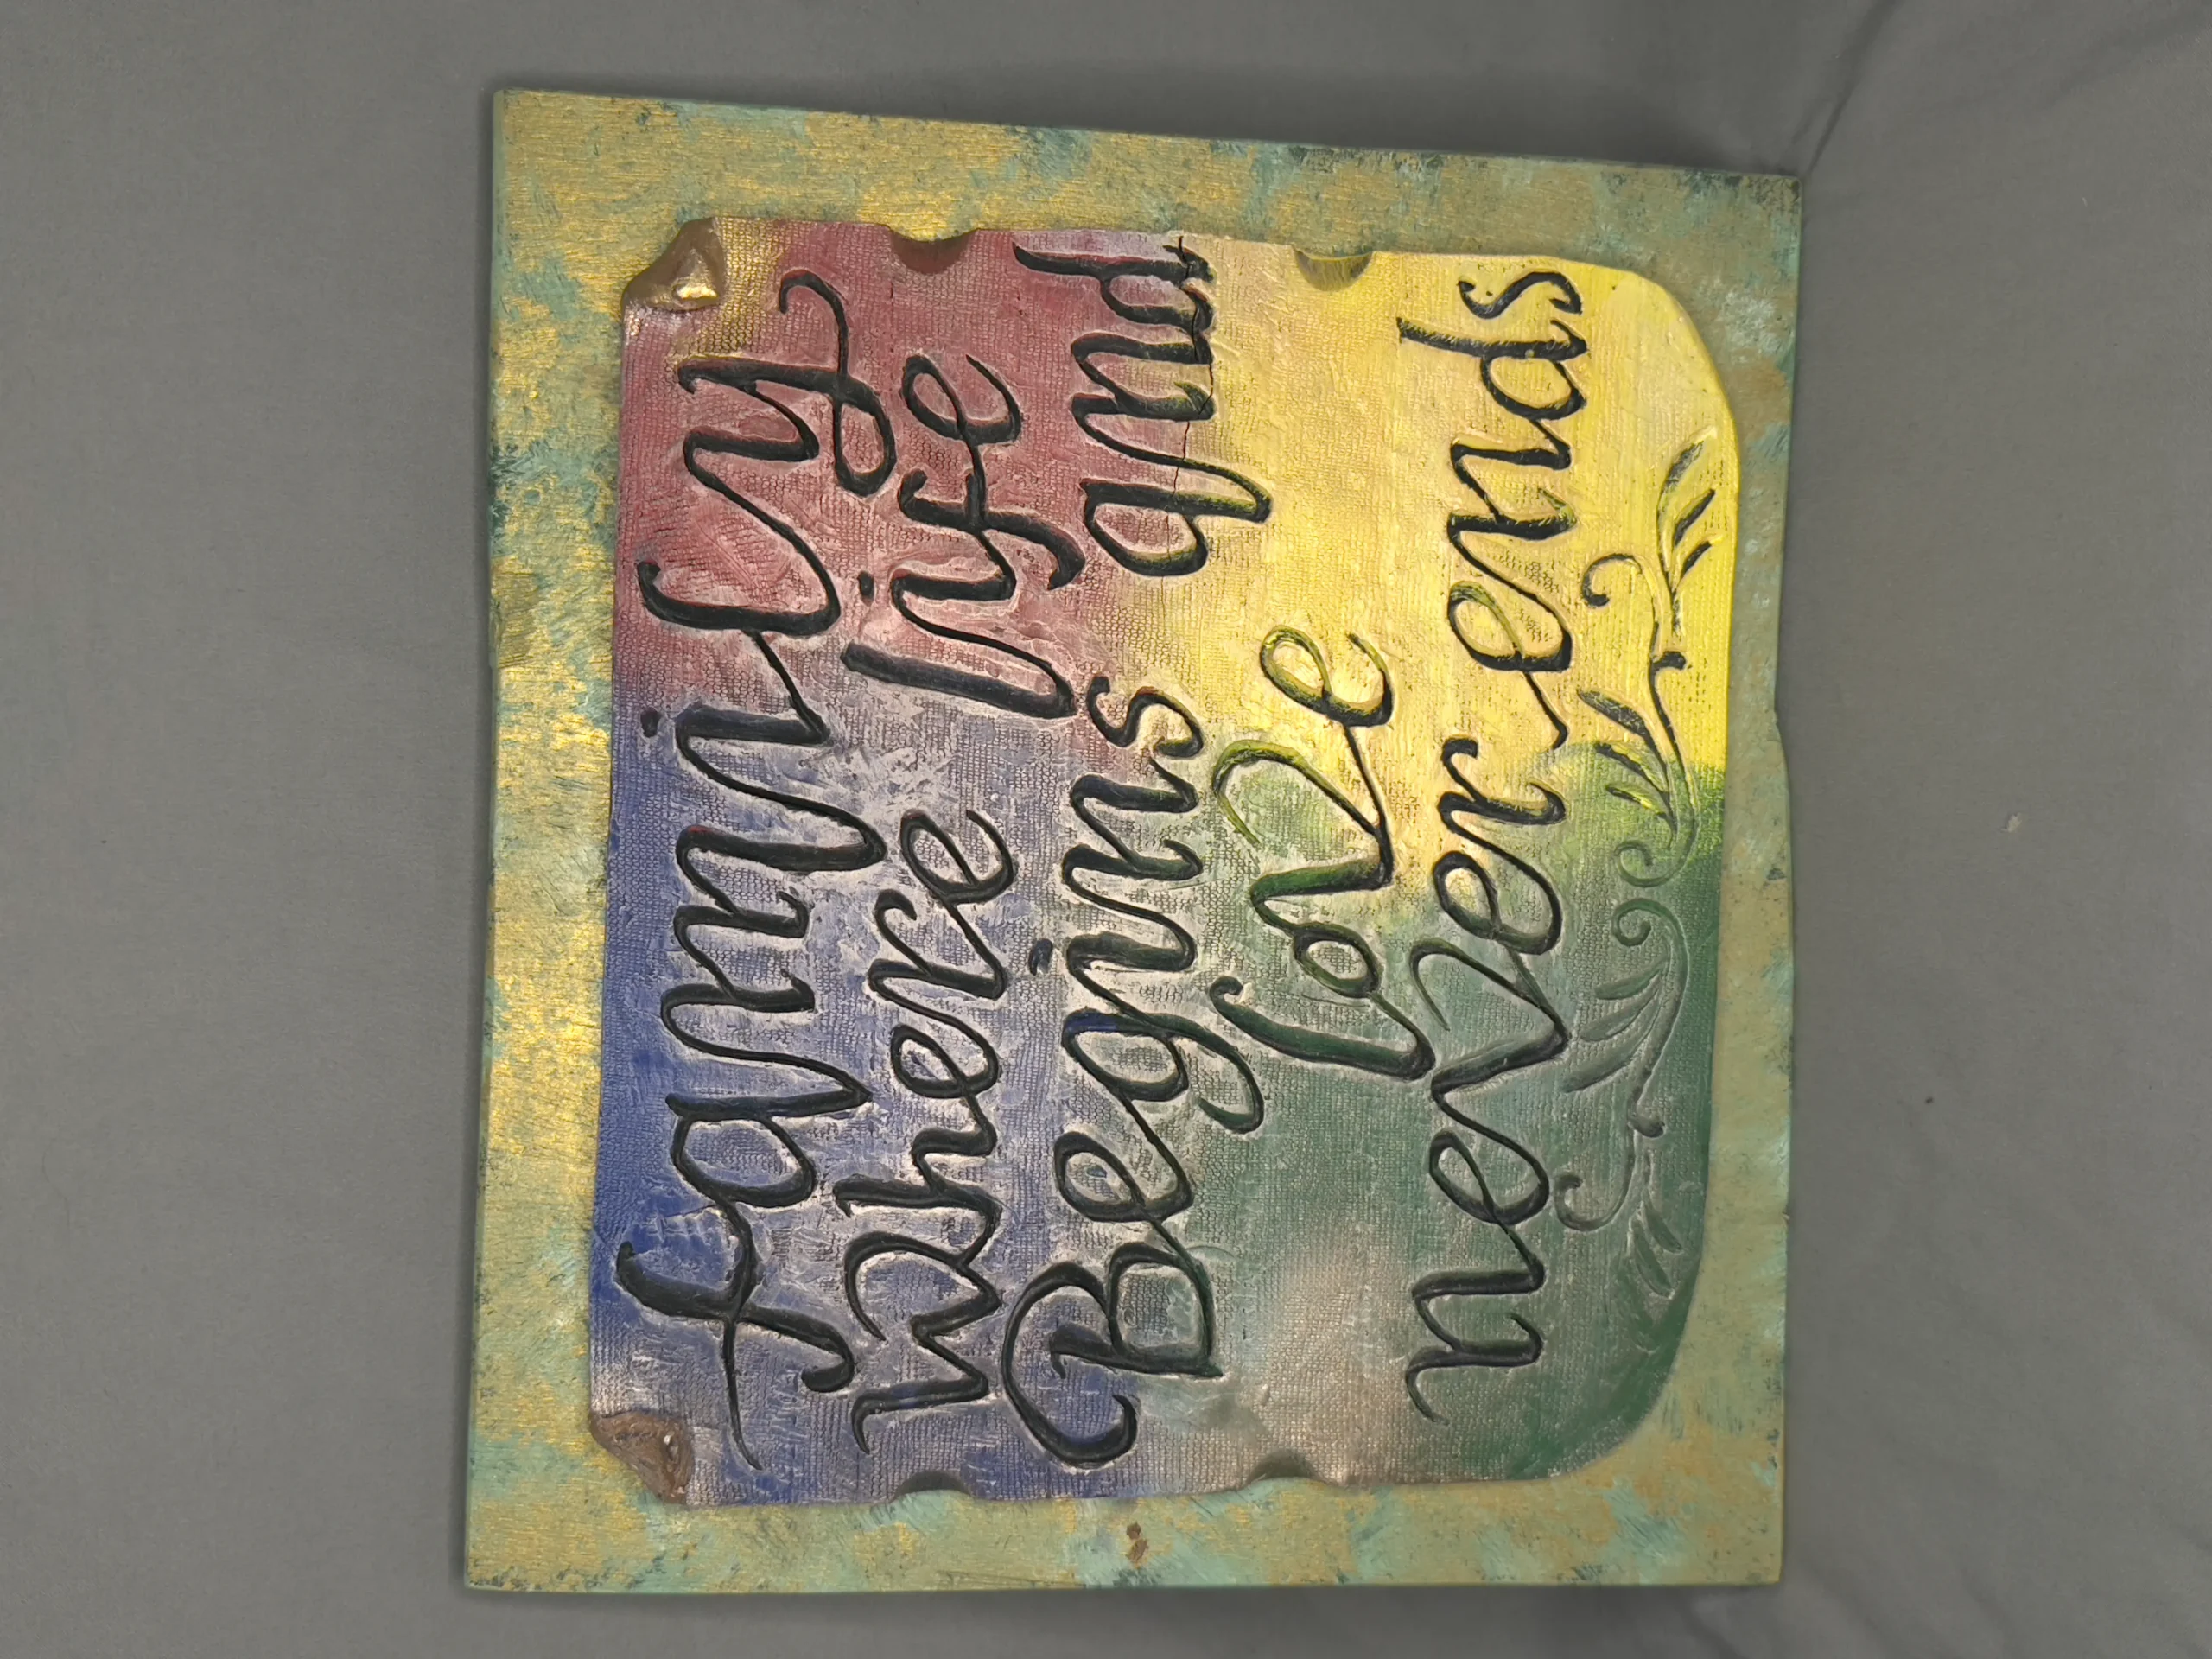 family
where life
Begins and
love
never ends